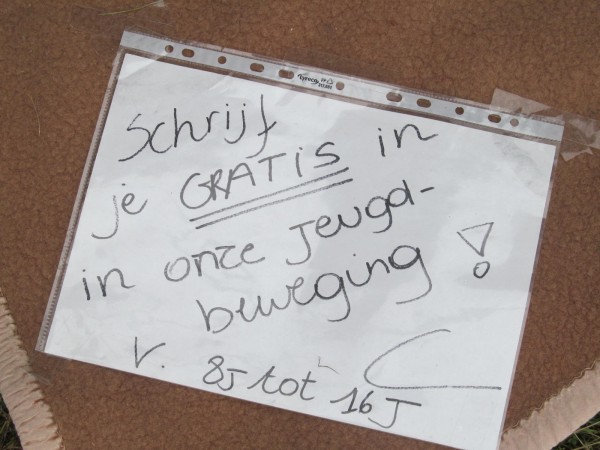 Schrijf
je GRATiS in
in onze jeugd-
beweging !
v. 8J tot 16J